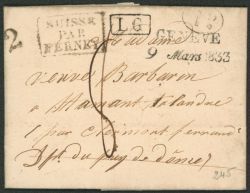 SUISSE
PAR
FERNEY
L.G
GENEVE
9 Mars 1833
2
Madame
veuve Barbarin
a
par Clermont ferrand
Dpt. du puy de dôme
245